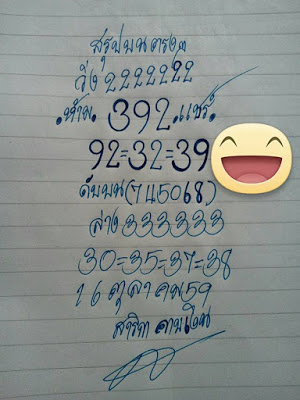 สรุปบนตรงๆ
วิ่ง 2222222
.ห้าม. 392 .แชร์.
92=32=39
ดับบน(745068)
ล่าง 333333
30=35=37=38
16 ตุลาคม59
สาริกา